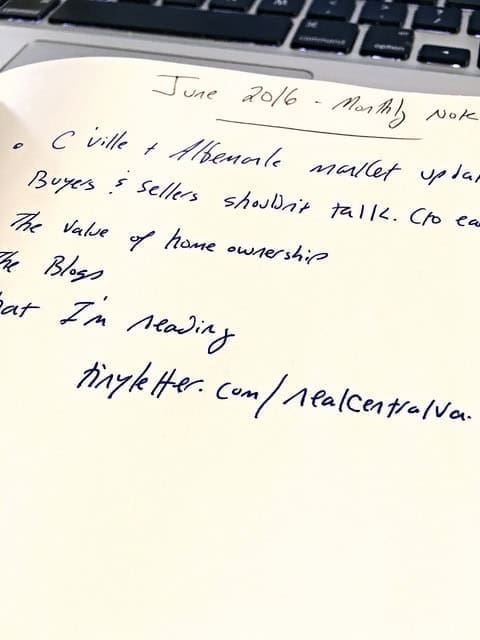 command
option
June 2016 - Monthly Note
• C'ville + Albemarle market updat
Buyers & sellers shouldn't talk. (to ea
The value of home ownership
The Blogs
hat I'm reading
tinyletter.com/realcentralva.